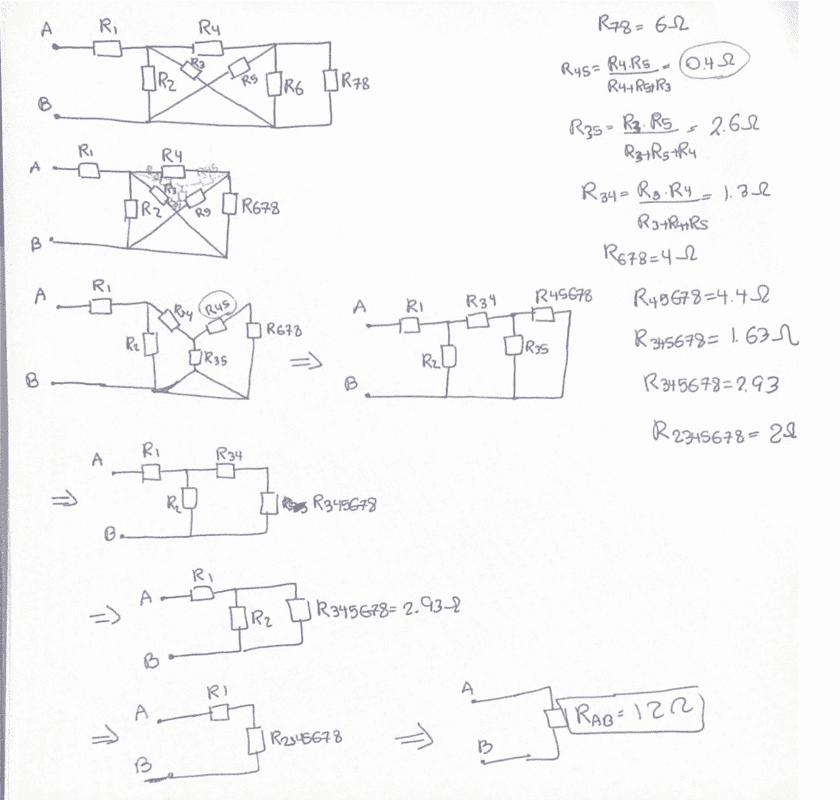 A
R1
R4
R3
R5
R2
R6
R78
B
R78= 6Ω
R45= R4.R5 / R4+R5+R3 = 0.4Ω
R35= R3.R5 / R3+R5+R4 = 2.6Ω
R34= R3.R4 / R3+R4+R5 = 1.3Ω
R678=4Ω
R45678=4.4Ω
R345678= 1.63Ω
R345678=2.93
R2345678= 2Ω
A
R1
R4
R2
R5
R678
B
A
R1
R34
R45
R2
R35
R678
B
⇒
A
R1
R34
R45678
R2
R35
B
⇒
A
R1
R34
R2
R345678
B
⇒
A
R1
R2
R345678= 2.93Ω
B
⇒
A
R1
R2345678
B
⇒
A
RAB=12Ω
B